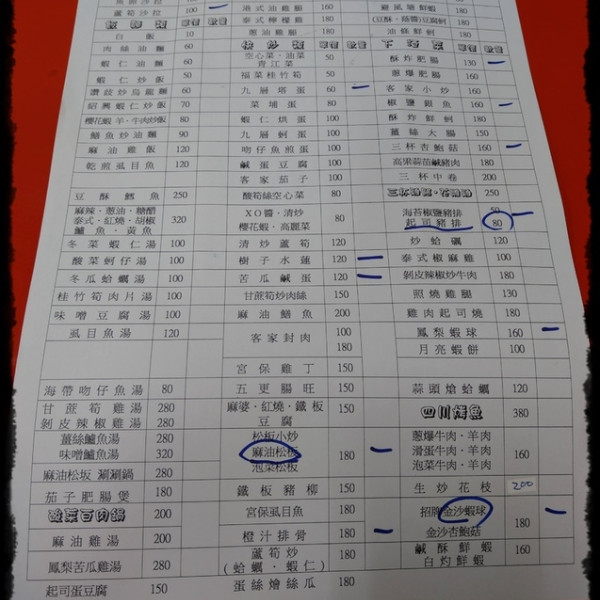 蘆筍沙拉 100 港式油雞 160 避風塘鮮蝦
泰式檸檬雞 (豆酥、蒜醬)豆腐蚵
蔥油雞腿 油條鮮蚵
飯麵類 單價 數量 快炒類 單價 數量 下酒菜 單價 數量
白飯 10 空心菜·油菜 青江菜 50 酥炸肥腸 130
肉絲油麵 60 蔥爆肥腸 160
蝦仁油麵 60 福菜桂竹筍 50
蝦仁炒飯 50 九層塔蛋 60 客家小炒 160
讚歧炒烏龍麵 60 椒鹽銀魚 160
紹興蝦仁炒飯 70 菜埔蛋 80 酥炸鮮蚵 180
櫻花蝦·羊·牛肉炒飯 80 蝦仁烘蛋 100 薑絲大腸 150
鱔魚炒油麵 90 九層蚵蛋 100 三杯杏鮑菇 160
麻油雞飯 80 吻仔魚煎蛋 100 高粱蒜苗鹹豬肉 180
乾煎虱目魚 100 鹹蛋豆腐 100 三杯中卷 200
客家茄子 100
豆酥鱈魚 250 酸筍絲空心菜 80
麻辣·蔥油·糖醋 泰式·紅燒·胡椒 鱸魚·黃魚 320 XO醬·清炒 櫻花蝦·高麗菜 80 海苔椒鹽豬排 50
起司豬排 80
冬菜蝦仁湯 100 清炒蘆筍 100 炒蛤蠣 120
酸菜蚵仔湯 100 樹子水蓮 120 泰式椒麻雞 160
冬瓜蛤蠣湯 100 苦瓜鹹蛋 120 剝皮辣椒炒牛肉 180
桂竹筍肉片湯 100 甘蔗筍炒肉絲 150 照燒雞腿 130
味噌豆腐湯 100 麻油鱔魚 200 雞肉起司燒 180
虱目魚湯 120 客家封肉 100 180 鳳梨蝦球 160
月亮蝦餅 100
宮保雞丁 150
海帶吻仔魚湯 80 五更腸旺 150 蒜頭熗蛤蠣 120
甘蔗筍雞湯 280 剝皮辣椒雞湯 280 麻婆·紅燒·鐵板豆腐 150 四川烤魚 380
薑絲鱸魚湯 280 味噌鱸魚湯 320 松板小炒 麻油松板 泡菜松板 180 蔥爆牛肉·羊肉 滑蛋牛肉·羊肉 泡菜牛肉·羊肉 160
麻油松坂 涮涮鍋 280
茄子肥腸煲 180 鐵板豬柳 150 生炒花枝 200
酸菜百肉鍋 200 宮保虱目魚 180 招牌金沙蝦球 180
麻油雞湯 200 橙汁排骨 180 金沙杏鮑菇
鳳梨苦瓜雞湯 280 蘆筍炒 (蛤蠣、蝦仁) 180 鹹酥鮮蝦 白灼鮮蝦 160
起司蛋豆腐 150 蛋絲燴絲瓜 180